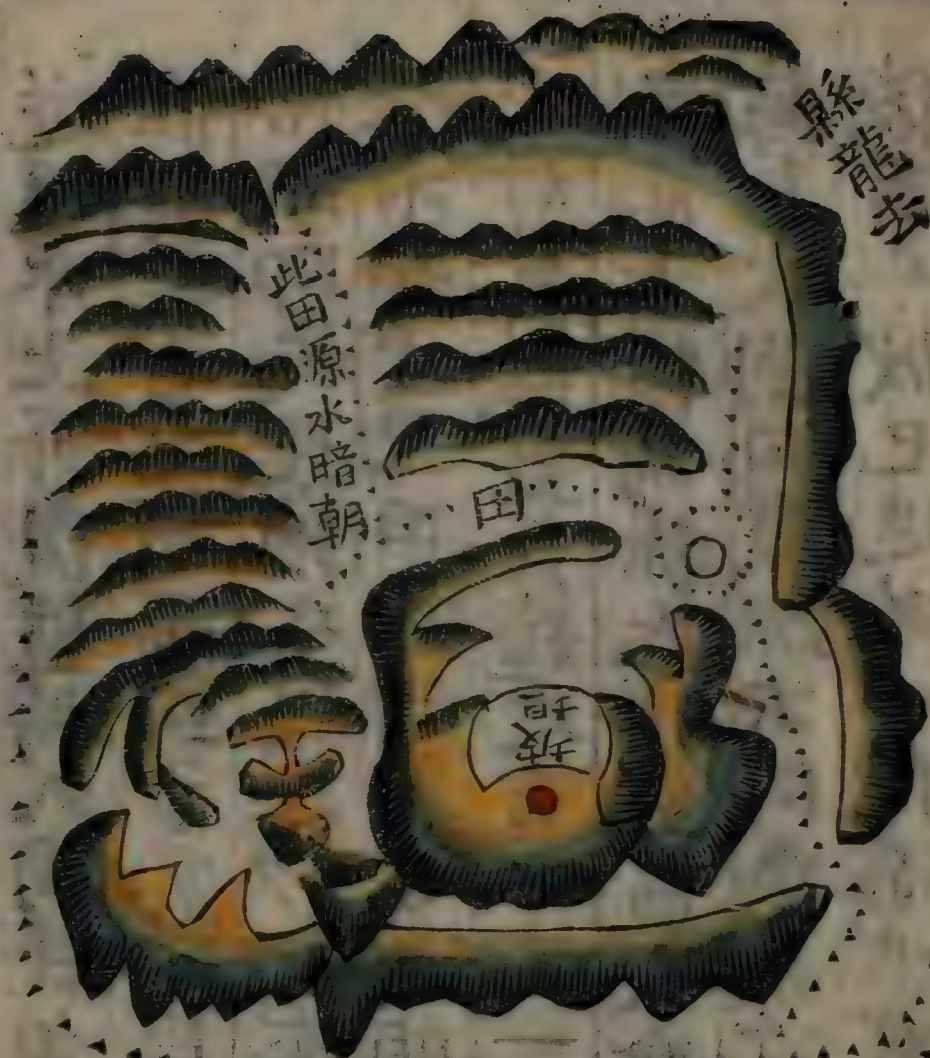 縣龍去
此田源水暗朝
田
坦坡